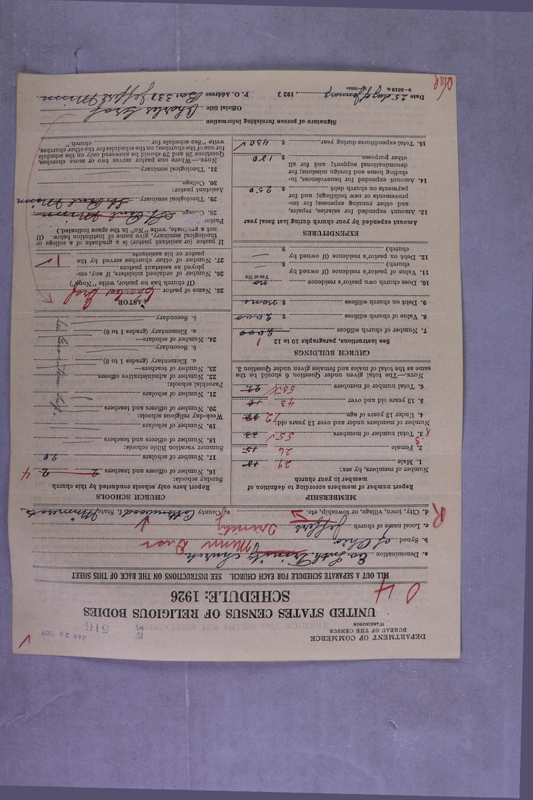 DEPARTMENT OF COMMERCE
BUREAU OF THE CENSUS
WASHINGTON
JAN 28
516
UNITED STATES CENSUS OF RELIGIOUS BODIES
SCHEDULE: 1926
04
FILL OUT A SEPARATE SCHEDULE FOR EACH CHURCH. SEE INSTRUCTIONS ON THE BACK OF THIS SHEET
a. Denomination Ev. Luth. Trinity Church
b. Synod of Ohio Minn Dist
c. Local name of church Jeffers Trinity
d. City, town, village, or township, etc. County Cottonwood State Minnesota
R
MEMBERSHIP
Report number of members according to definition of member in your church
Number of members, by sex:
1. Male 29
2. Female 26
3. Total number of members 55
Number of members under and over 13 years old:
4. Under 13 years of age 12
5. 13 years old and over 43
6. Total number of members 55
NOTE.—The total given under Question 6 should be the same as the total of males and females given under Question 3.
CHURCH BUILDINGS
See instructions, paragraphs 10 to 12
7. Number of church edifices 1
8. Value of church edifices $ 2000
9. Debt on church edifices $ none
10. Does church own pastor's residence no
(Yes or No)
11. Value of pastor's residence (if owned by church) $
12. Debt on pastor's residence (if owned by church) $
EXPENDITURES
Amount expended by your church during last fiscal year
13. Amount expended for salaries, repairs, and other running expenses; for improvements or new buildings; and for payments on church debt $ 250
14. Amount expended for benevolences, including home and foreign missions; for denominational support; and for all other purposes $ 180
15. Total expenditures during year $ 430
CHURCH SCHOOLS
Report here only schools conducted by this church
Sunday schools:
16. Number of officers and teachers 2 4
17. Number of scholars 20
Summer vacation Bible schools:
18. Number of officers and teachers
19. Number of scholars
Week-day religious schools:
20. Number of officers and teachers
21. Number of scholars
Parochial schools:
22. Number of administrative officers
23. Number of teachers—
a. Elementary (grades 1 to 8)
b. Secondary
24. Number of scholars—
a. Elementary (grades 1 to 8)
b. Secondary
PASTOR
25. Name of pastor Charles Graf
(If church has no pastor, write "None")
26. Number of ordained ministers, if any, employed as assistant pastors
27. Number of other churches served by the pastor or his assistants 1
If pastor (or assistant pastor) is a graduate of a college or theological seminary, give name of institution below. (If not a graduate, write "No" in the space indicated.)
Pastor:
28. College
29. Theological seminary St Paul Minn
Assistant pastor:
30. College
31. Theological seminary
NOTE.—Where one pastor serves two or more churches, Questions 28 and 29 should be answered only on the schedule for one of the churches; on the schedule for the other churches, write "See schedule for church."
Signature of person furnishing information
Charles Graf
Official title
P. O. Address Box 332 Jeffers Minn
Date 25 day of January, 1927